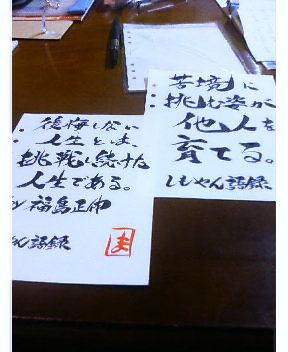 後悔しない
人生とは、
挑戦し続けた
人生である。
by 福島正伸
語録
ま
苦境に
挑む姿が
他人を
育てる。
しもやん語録